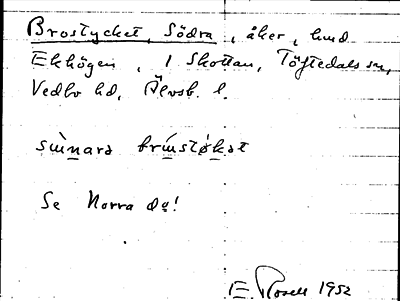 Brostycket, Södra, åker, hmd.
Ekhögen, 1 Skottan, Töftedals sn,
Vedbo hd, Älvsb. l.
sùnara brústøkət
Se Norra do!
E. Rosell 1952